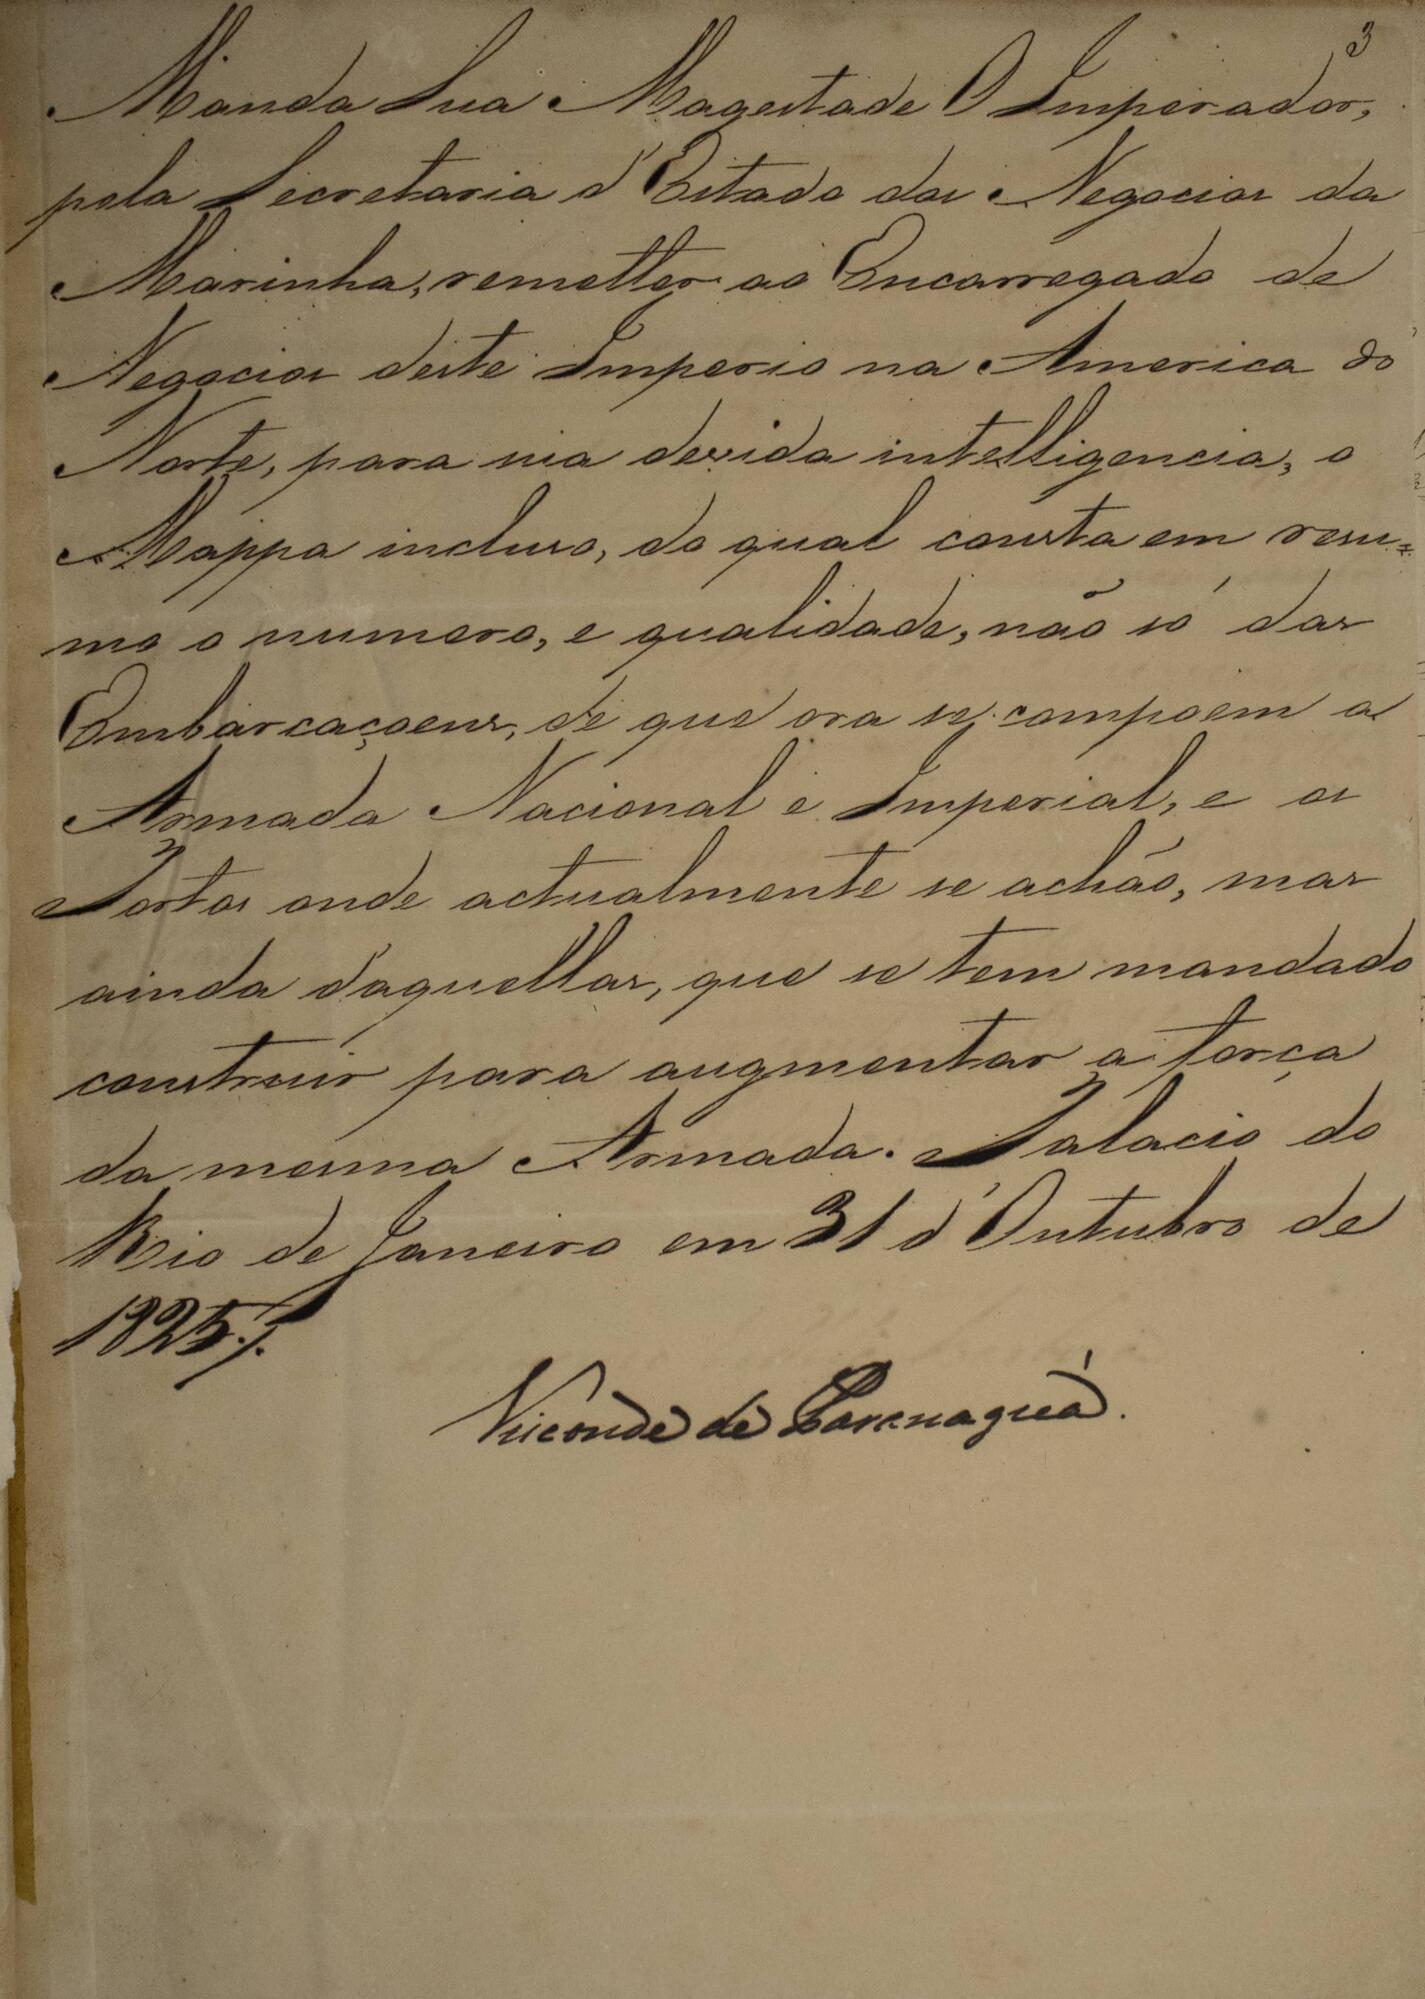 3
Manda Sua Magestade O Imperador,
pela Secretaria d'Estado dos Negocios da
Marinha, remetter ao Encarregado de
Negocios deste Imperio na America do
Norte, para sua devida intelligencia, o
Mappa incluso, do qual consta em resu=
mo o numero, e qualidade, não só das
Embarcaçoens, de que ora se compoem a
Armada Nacional e Imperial, e os
Portos onde actualmente se achão, mas
ainda d'aquellas, que se tem mandado
construir para augmentar a força
da mesma Armada. Palacio do
Rio de Janeiro em 31 d'Outubro de
1825./.
Visconde de Paranaguá.